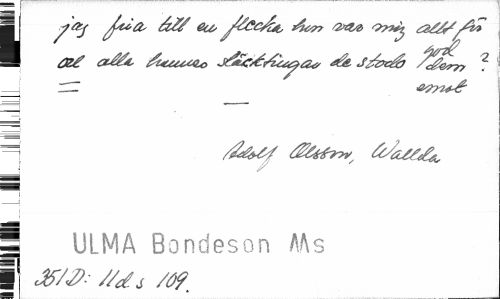 jag fria till en flecka hon var mig allt för
god
œl alla hennes släcktingar de stodo dem ?
emot
Adolf Olsson, Wallda
ULMA Bondeson Ms
351D: 11 d s 109.